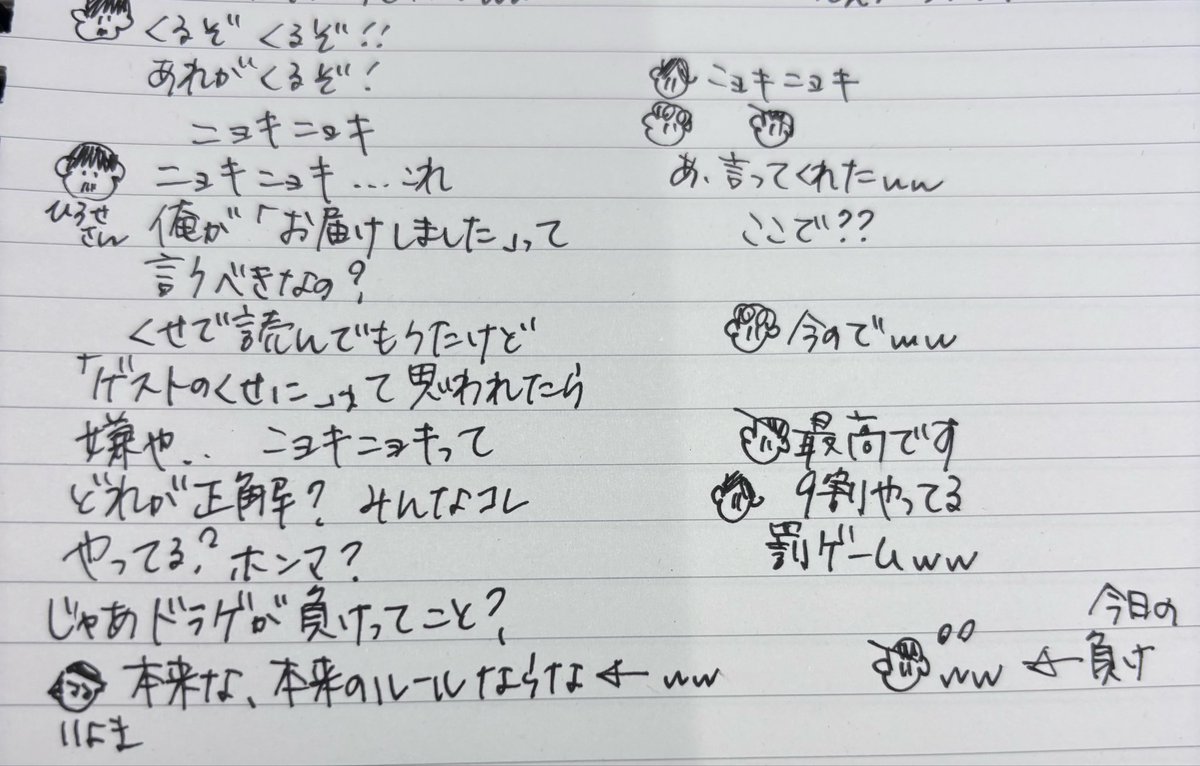 くるぞ くるぞ!!
あれがくるぞ!
ニョキニョキ
ニョキニョキ…これ
ひろせさん
俺が「お届けしました」って
言うべきなの?
くせで読んでもうたけど
「ゲストのくせに」って思われたら
嫌や.. ニョキニョキって
どれが正解? みんなコレ
やってる? ホンマ?
じゃあドラゲが負けってこと?
本来な、本来のルールならな ← ww
いよま
ニョキニョキ
あ、言ってくれたww
ここで??
今のでww
最高です
9割やってる
罰ゲームww
ww ← 今日の負け